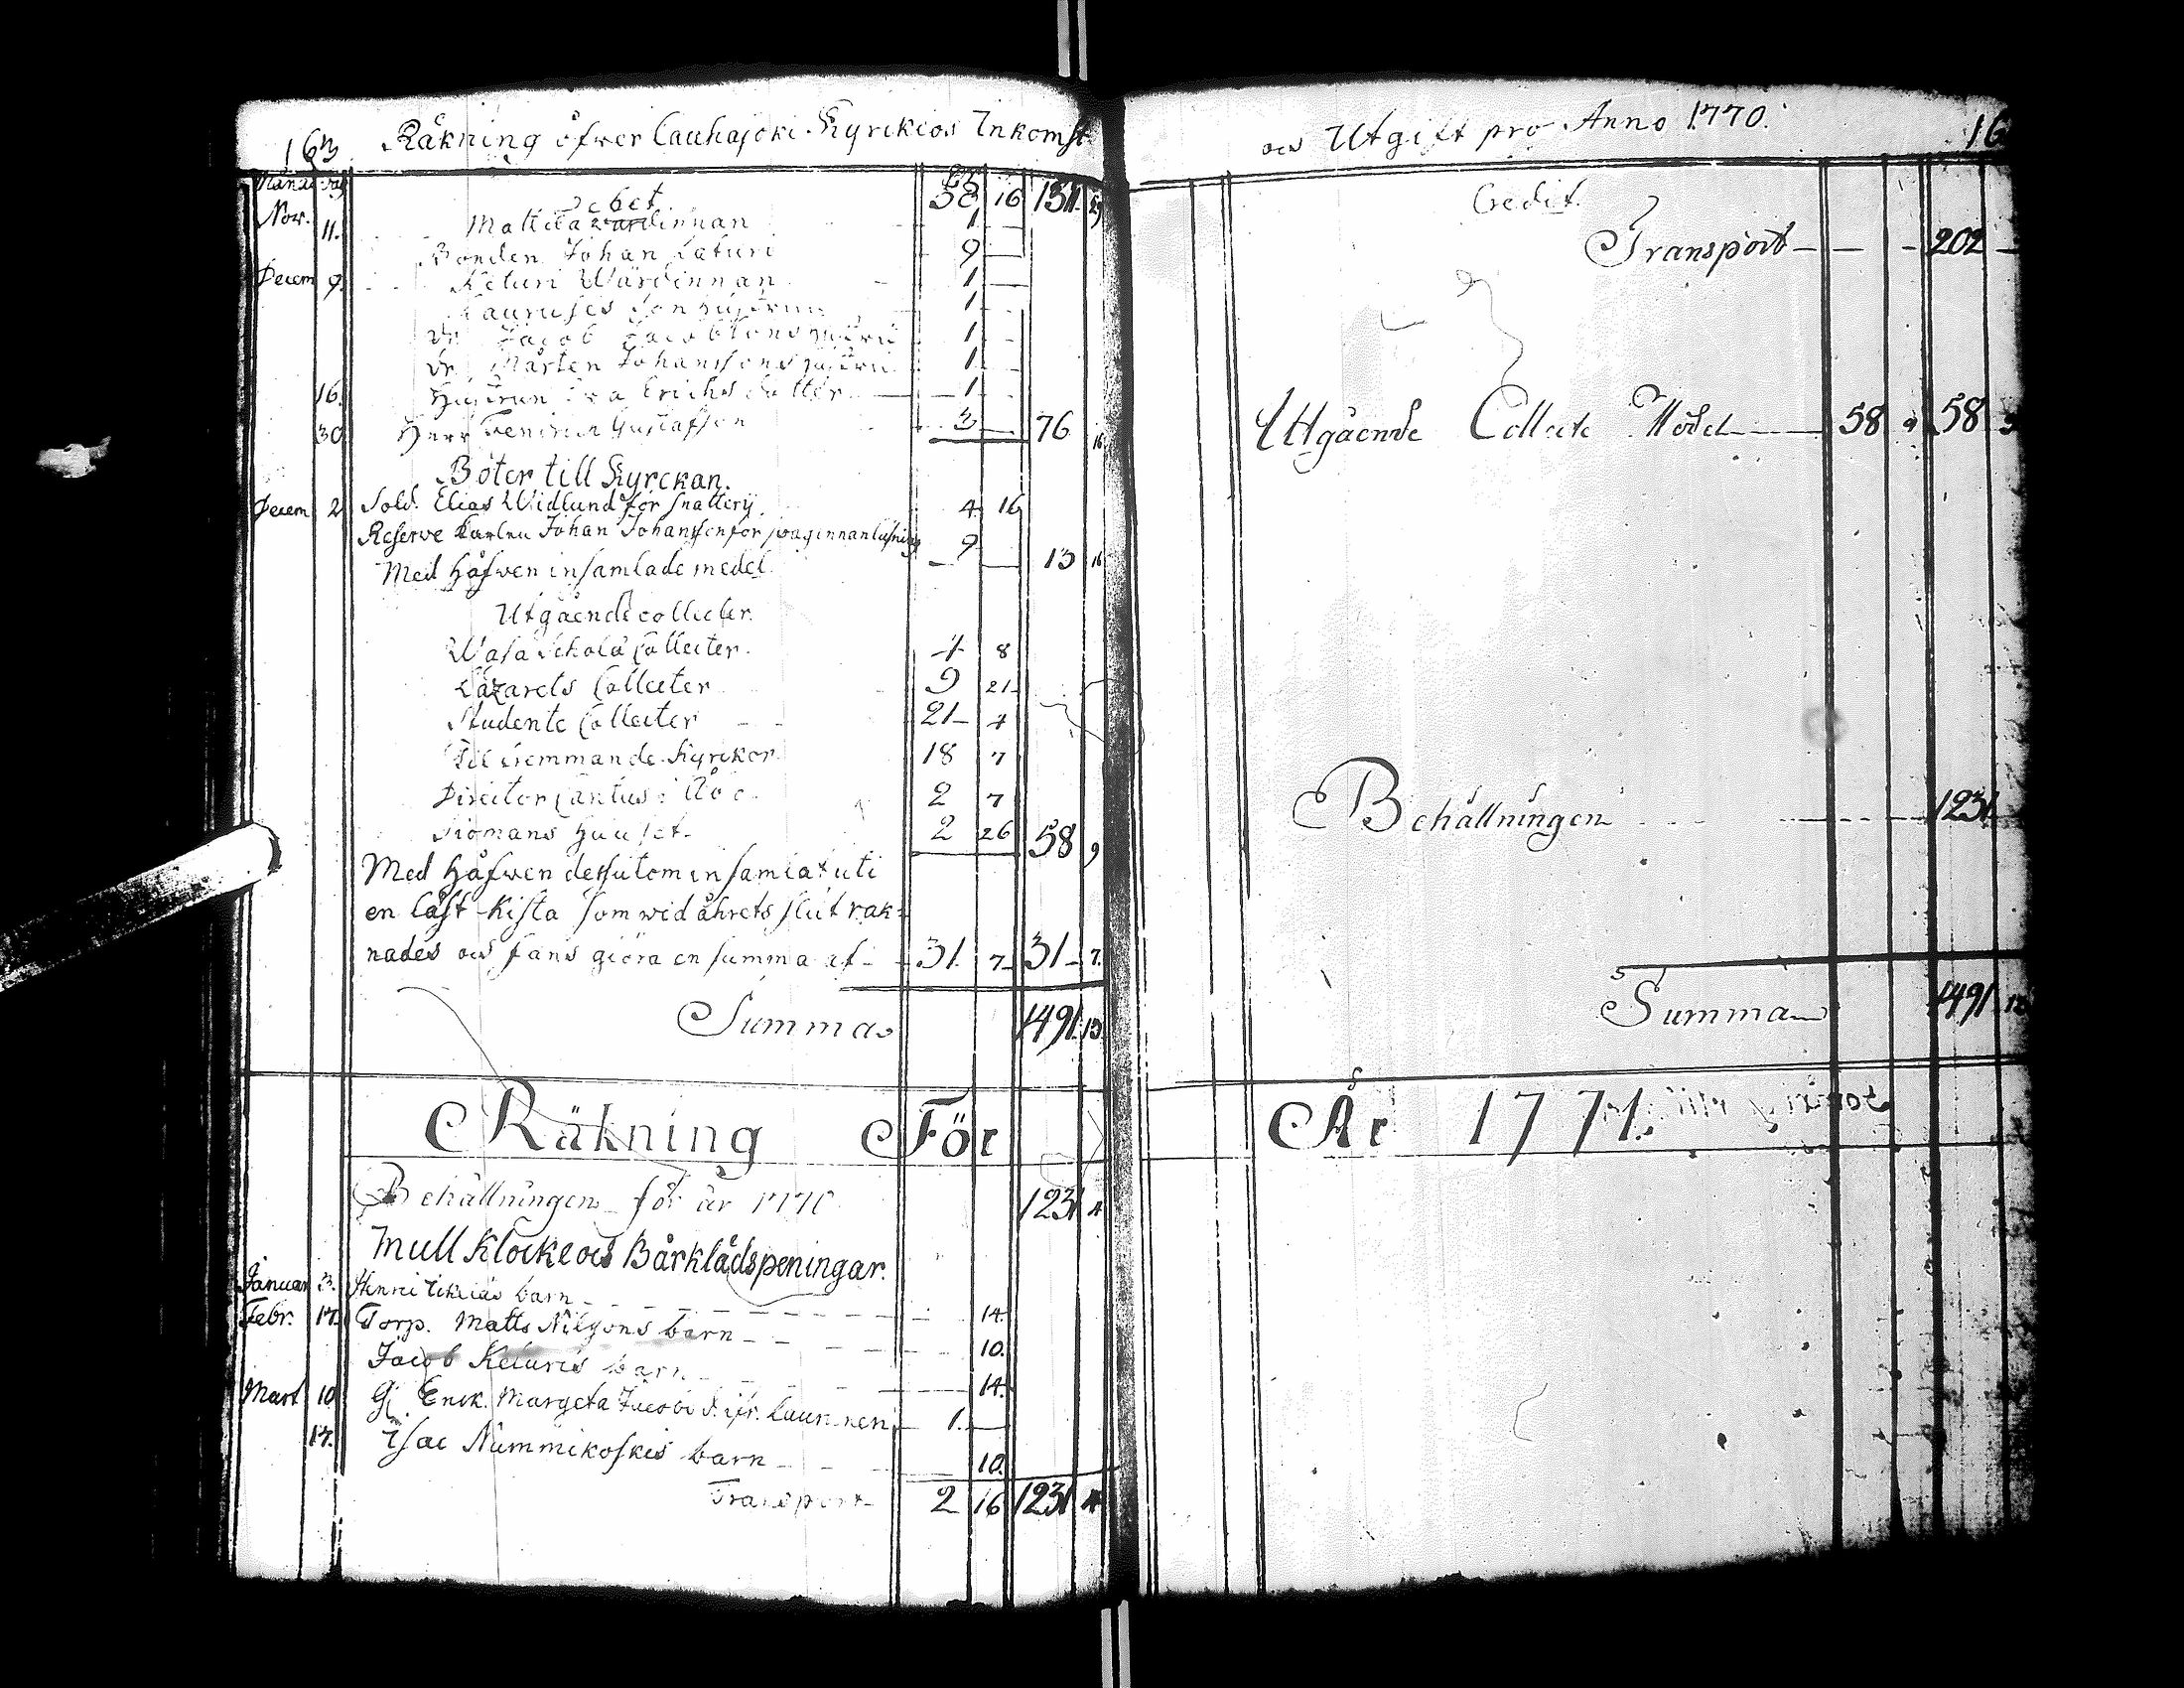 163 Räkning öfwer Cauhajoki Kyrckios Inkomst
Månad dag Debet. 38 16 1311. 29
Nov. 11. Mattila wärdinnan 1 —
Bonden Johan Laturi 9 —
Decem 9. Keturi Wärdinnan 1 —
hustru 1
Dr. Jacob Jacobsons hustru 1
Dr. Mårten Johanssons hustru 1
16. Hustrun Eva Erichsdotter — 1
30. Herr Gustafson 3 — 76 16
Böter till Kyrckan.
Decem 2 Sold. Elias Widlund för snattery. 4 16
Reserve Karlen Johan Johansson för innanläsning 9 — 13 16
Med Håfwen insamlade medel.
Utgående collecter.
Wasa Schola Collecter. 4 8
Lazarets Collecter 9 21
Studente Collecter 21 4
Til fremmande Kyrckor 18 7
Director Cantus i Åbo. 2 7
Siömans Huuset 2 26 58 9
Med Håfwen dessutom insamlat uti
en låst Kista som wid åhrets slut räk-
nades och fans giöra en summa af 31. 7. 31 7.
Summa 1491. 13.
Räkning För
Behållningen för år 1770 1231 4
Mull Klocke och Bårklädspeningar.
Januar 3. Henric barn 14.
Febr. 17. Torp. Matts Nilssons barn 10.
Jacob Keturis barn 14.
Mart 10 Gl. Enck. Margeta Jacobsd. ifr. 1. —
17. Isac Nummikoskis barn 10.
Transport 2 16 1231 4
och Utgift pro Anno 1770. 16
Credit.
Transport — — 202 —
Utgående Collecte Medel 58 9 58 9
Behållningen 1231
Summa 1491 13
År 1771.